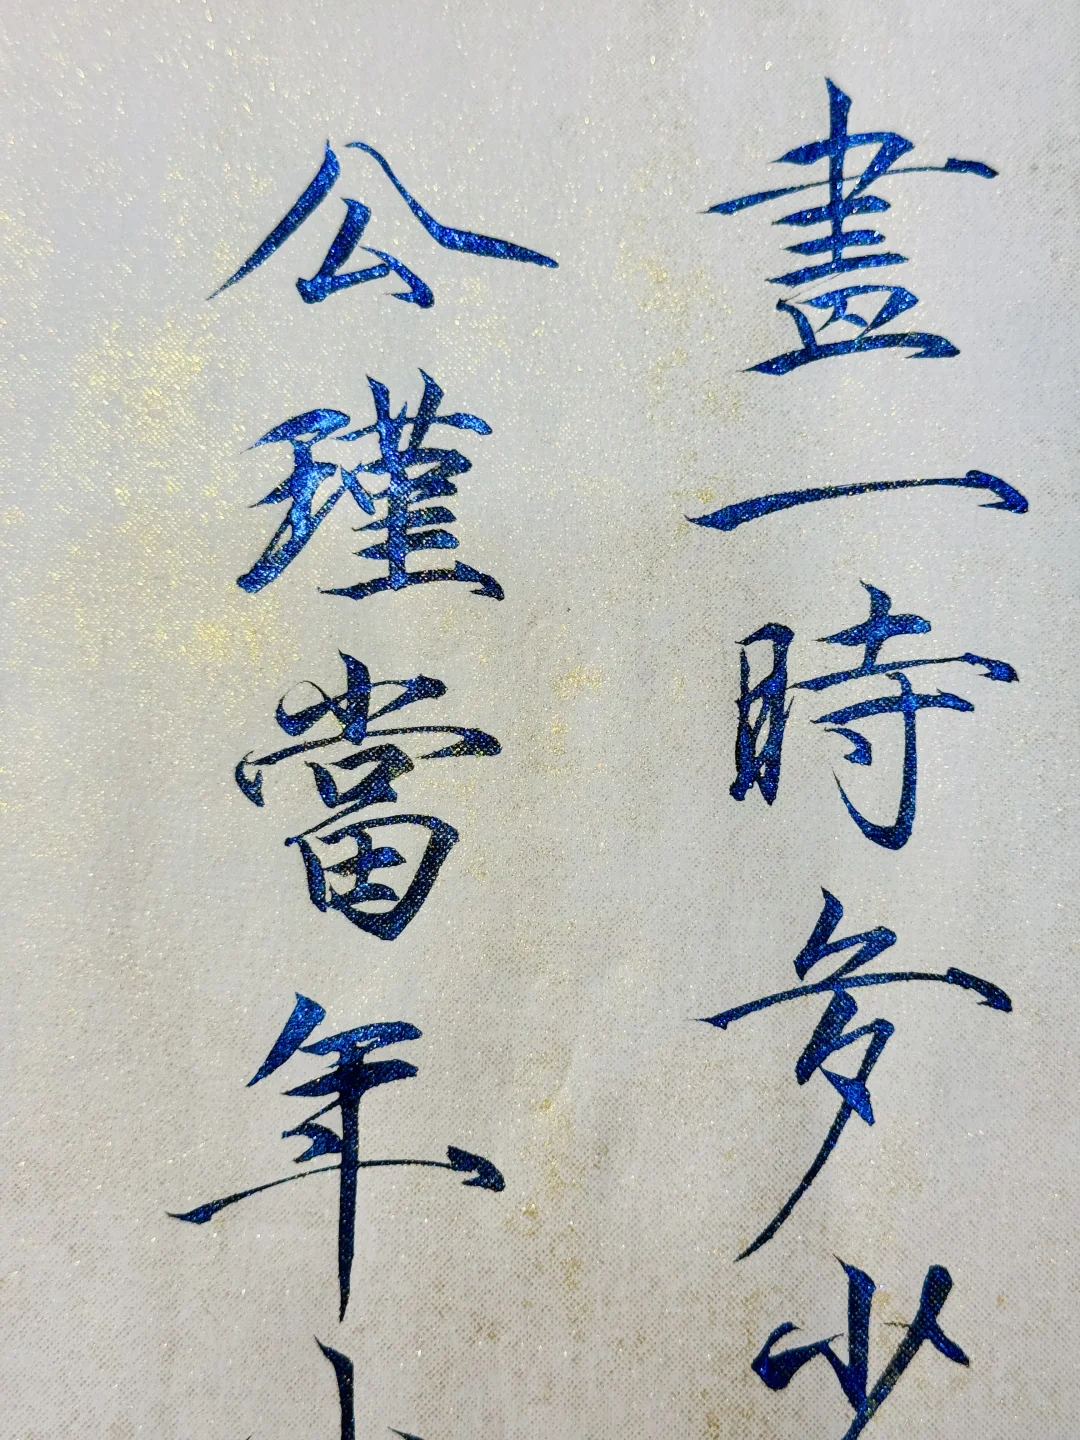 畫一時多少
公瑾當年